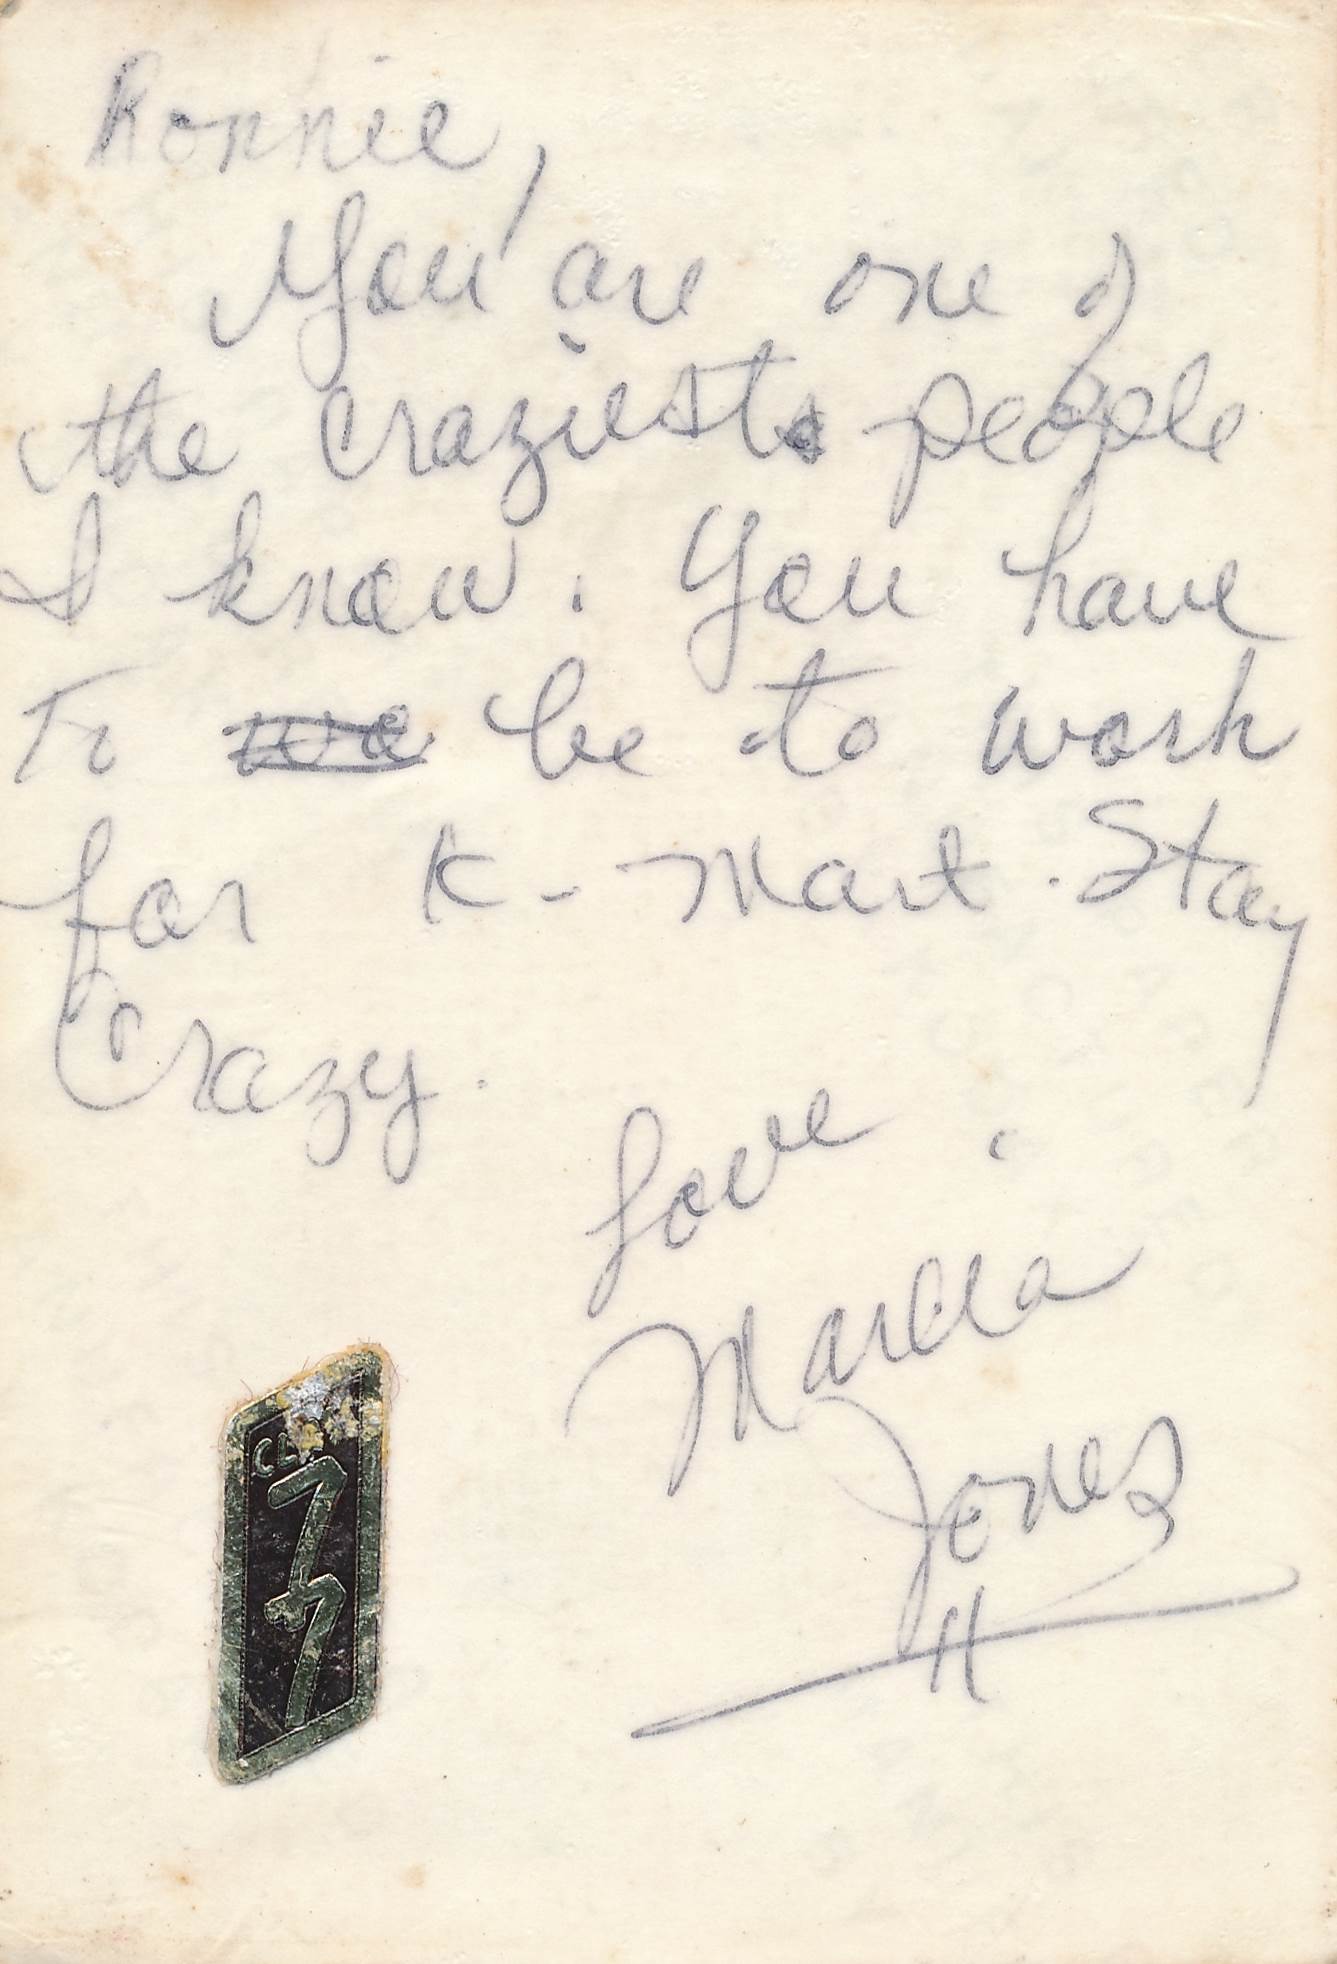 Ronnie,
You are one of
the craziest people
I know. You have
To be to work
for K-Mart. Stay
Crazy.
Love
Marcia
Jones
CLASS
77